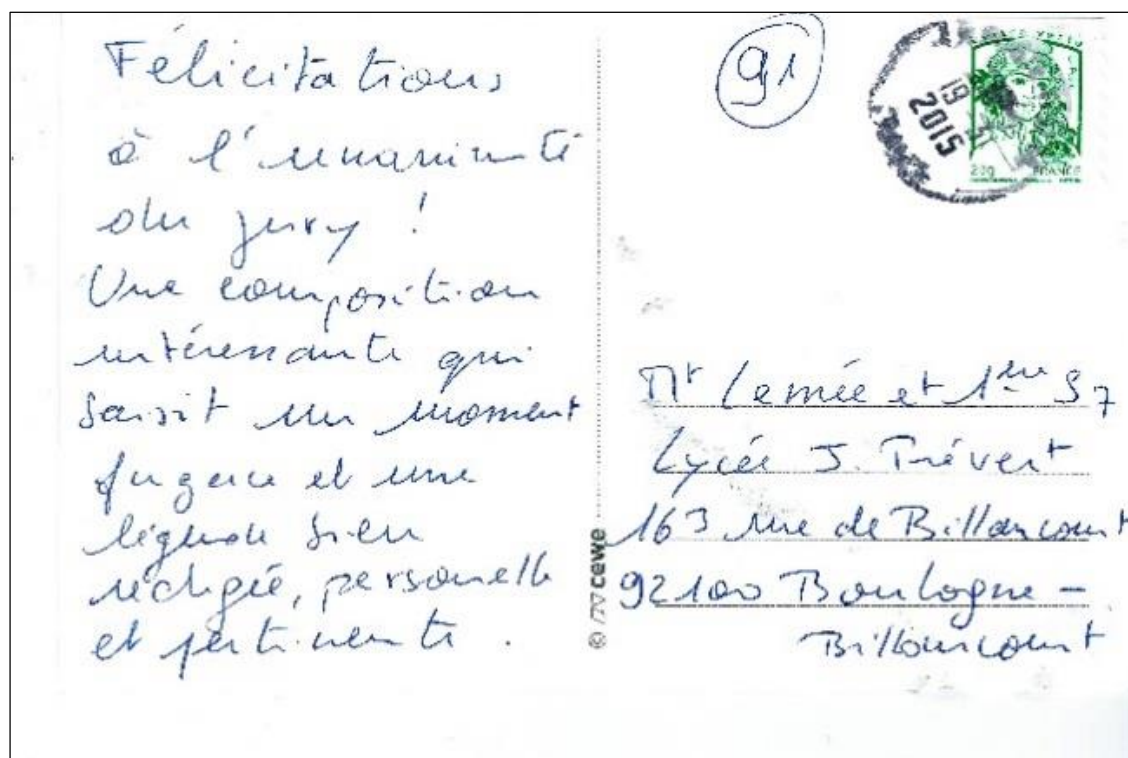 Félicitations
à l'unanimité
du jury !
Une composition
intéressante qui
saisit un moment
fugace et une
légende bien
rédigée, personelle
et pertinente.
91
19
2015
20g FRANCE
Mr Lemée et 1ère S7
Lycée J. Prévert
163 rue de Billancourt
92100 Boulogne -
Billancourt
cewe